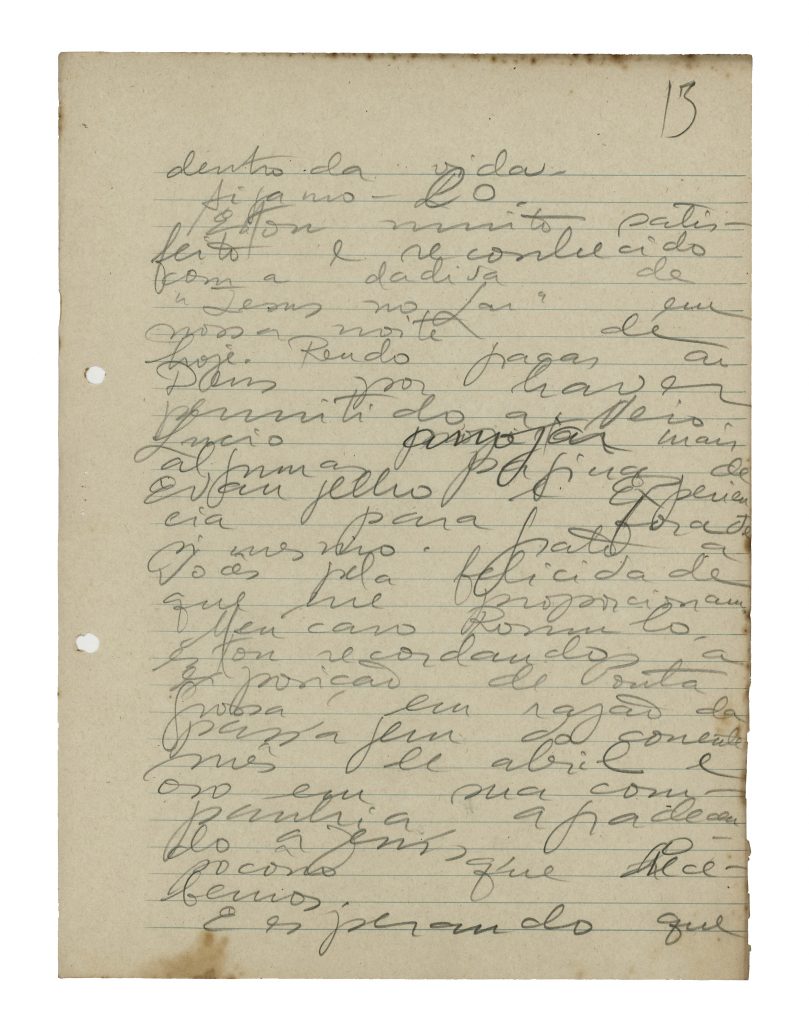 13
dentro da vida.
Sigamo-Lo.
Estou muito satis-
feito e reconhecido
com a dadiva de
"Jesus no Lar" em
nossa noite de
hoje. Rendo graças a
Deus por haver
permitido a Neio
Lucio projetar mais
algumas paginas de
Evangelho e Experien
cia para fora de
si mesmo. Grato a
Vocês pela felicidade
que me proporcionam.
Meu caro Romulo,
estou recordando a
exposição de Ponta
Grossa, em razão da
passagem do corrente
mês de abril e
oro em sua com-
panhia agradecen
do a Jesus o
socorro que rece-
bemos.
E esperando que